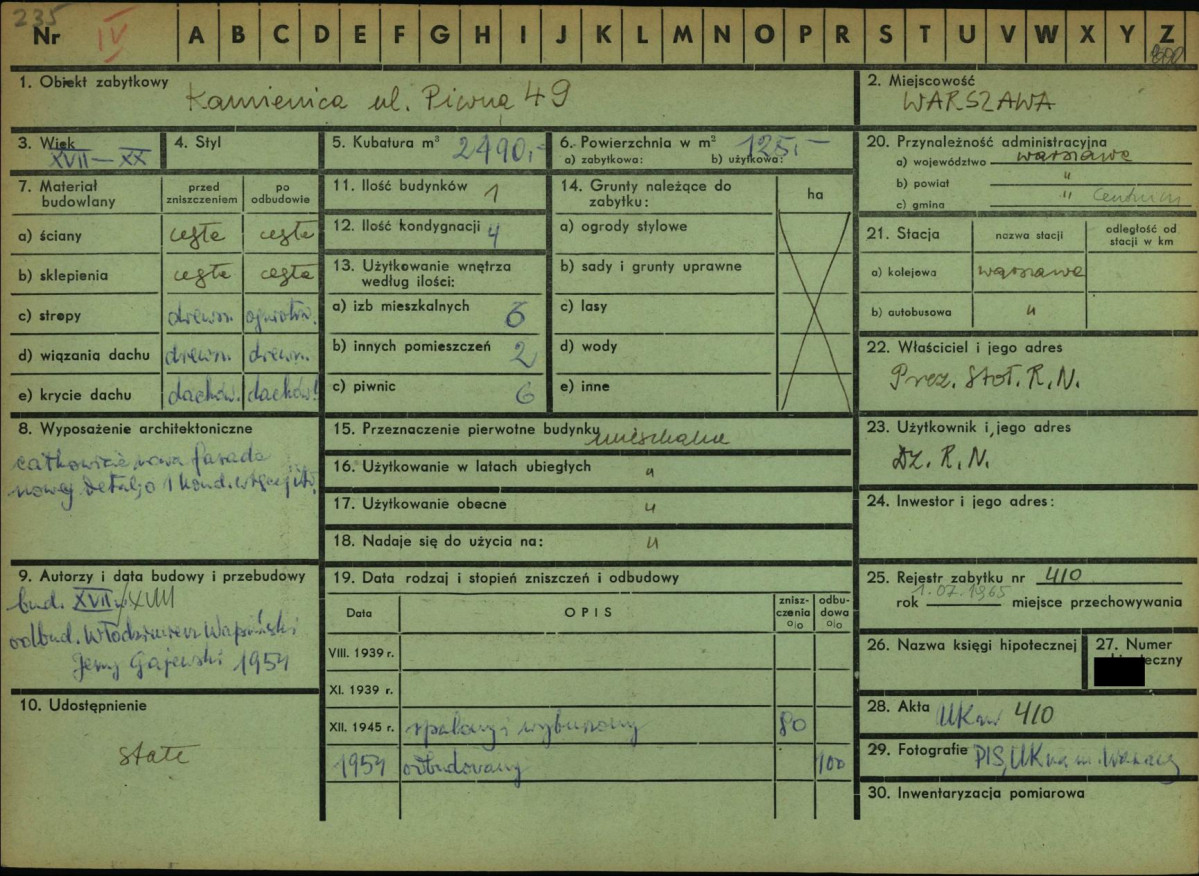 235
Nr IV A B C D E F G H I J K L M N O P R S T U V W X Y Z
1. Obiekt zabytkowy
Kamienica ul. Piwna 49
2. Miejscowość
WARSZAWA
3. Wiek
XVII — XX
4. Styl
5. Kubatura m³ 2490,-
6. Powierzchnia w m² 125.-
a) zabytkowa: b) użytkowa:
7. Materiał budowlany
przed zniszczeniem
po odbudowie
a) ściany cegła cegła
b) sklepienia cegła cegła
c) stropy drewn. ogniotrw.
d) wiązania dachu drewn. drewn.
e) krycie dachu dachów. dachów.
8. Wyposażenie architektoniczne
całkowicie nowa fasada
9. Autorzy i data budowy i przebudowy
bud. XVII/XVIII
odbud. Włodzimierz Wapiński
Jerzy Gajewski 1954
10. Udostępnienie
stałe
11. Ilość budynków 1
12. Ilość kondygnacji 4
13. Użytkowanie wnętrza
według ilości:
a) izb mieszkalnych 6
b) innych pomieszczeń 2
c) piwnic 6
14. Grunty należące do
zabytku:
ha
a) ogrody stylowe
b) sady i grunty uprawne
c) lasy
d) wody
e) inne
15. Przeznaczenie pierwotne budynku mieszkalne
16. Użytkowanie w latach ubiegłych "
17. Użytkowanie obecne "
18. Nadaje się do użycia na: "
19. Data rodzaj i stopień zniszczeń i odbudowy
Data OPIS znisz-czenia o|o odbu-dowa o|o
VIII. 1939 r.
XI. 1939 r.
XII. 1945 r. spalony i wyburzony 80
1954 odbudowany 100
20. Przynależność administracyjna
a) województwo warszawa
b) powiat "
c) gmina " Centrum
21. Stacja
nazwa stacji
odległość od
stacji w km
a) kolejowa warszawa
b) autobusowa "
22. Właściciel i jego adres
Prez. Stoł. R. N.
23. Użytkownik i jego adres
Dz. R. N.
24. Inwestor i jego adres:
25. Rejestr zabytku nr 410
rok 1.07.1965 miejsce przechowywania
26. Nazwa księgi hipotecznej
27. Numer
28. Akta UK 410
29. Fotografie PIS, UK
30. Inwentaryzacja pomiarowa